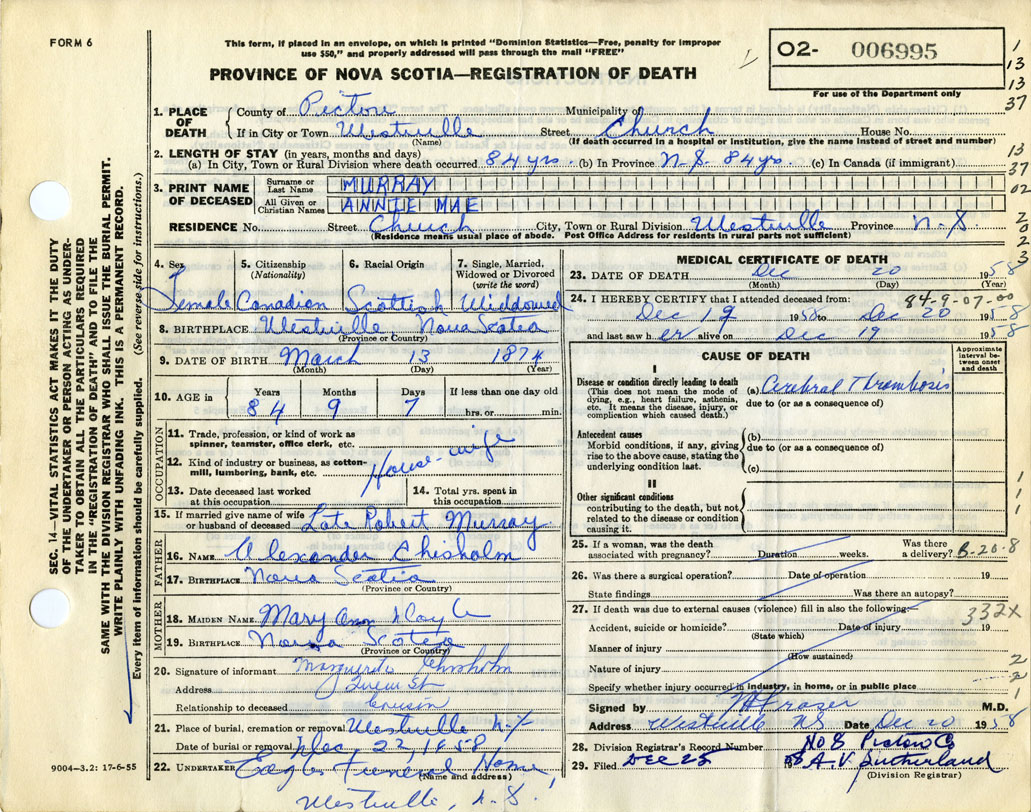 FORM 6
This form, if placed in an envelope, on which is printed "Dominion Statistics—Free, penalty for improper
use $50," and properly addressed will pass through the mail "FREE"
O2- 006995
For use of the Department only
PROVINCE OF NOVA SCOTIA—REGISTRATION OF DEATH
1
13
13
37
13
37
02
2
0
2
3
1. PLACE OF DEATH
County of Pictou Municipality of
If in City or Town Westville Street Church House No.
(Name) (If death occurred in a hospital or institution, give the name instead of street and number)
2. LENGTH OF STAY (in years, months and days)
(a) In City, Town or Rural Division where death occurred 84 yrs. (b) In Province N.S. 84 yrs. (c) In Canada (if immigrant)
3. PRINT NAME OF DECEASED
Surname or Last Name MURRAY
All Given or Christian Names ANNIE MAE
RESIDENCE No. Street Church City, Town or Rural Division Westville Province N.S.
(Residence means usual place of abode. Post Office Address for residents in rural parts not sufficient)
4. Sex
F
Female
5. Citizenship (Nationality)
Canadian
6. Racial Origin
Scottish
7. Single, Married, Widowed or Divorced (write the word)
Widdowed
8. BIRTHPLACE Westville, Nova Scotia
(Province or Country)
9. DATE OF BIRTH March 13 1874
(Month) (Day) (Year)
10. AGE in
Years Months Days If less than one day old
84 9 7 hrs. or min.
OCCUPATION
11. Trade, profession, or kind of work as spinner, teamster, office clerk, etc.
House-wife
12. Kind of industry or business, as cotton-mill, lumbering, bank, etc.
13. Date deceased last worked at this occupation
14. Total yrs. spent in this occupation
15. If married give name of wife or husband of deceased Late Robert Murray
FATHER
16. NAME Alexander Chisholm
17. BIRTHPLACE Nova Scotia
(Province or Country)
MOTHER
18. MAIDEN NAME Mary Ann
19. BIRTHPLACE Nova Scotia
(Province or Country)
20. Signature of informant Marguerite Chisholm
Address St
Relationship to deceased Cousin
21. Place of burial, cremation or removal Westville N.S.
Date of burial or removal Dec, 22, 1958
22. UNDERTAKER Eagle Funeral Home,
(Name and address)
Westville, N.S.
9004-3.2: 17-6-55
SEC. 14—VITAL STATISTICS ACT MAKES IT THE DUTY
OF THE UNDERTAKER OR PERSON ACTING AS UNDER-
TAKER TO OBTAIN ALL THE PARTICULARS REQUIRED
IN THE "REGISTRATION OF DEATH" AND TO FILE THE
SAME WITH THE DIVISION REGISTRAR WHO SHALL ISSUE THE BURIAL PERMIT.
WRITE PLAINLY WITH UNFADING INK. THIS IS A PERMANENT RECORD.
Every item of information should be carefully supplied. (See reverse side for instructions.)
MEDICAL CERTIFICATE OF DEATH
23. DATE OF DEATH Dec 20 1958
(Month) (Day) (Year)
24. I HEREBY CERTIFY that I attended deceased from: 84-9-07-00
Dec 19 1958 to Dec 20 1958
and last saw her alive on Dec 19 1958
CAUSE OF DEATH
Approximate interval between onset and death
I
Disease or condition directly leading to death
(This does not mean the mode of dying, e.g., heart failure, asthenia, etc. It means the disease, injury, or complication which caused death.)
(a) Cerebral Thrombosis
due to (or as a consequence of)
Antecedent causes
Morbid conditions, if any, giving rise to the above cause, stating the underlying condition last.
(b)
due to (or as a consequence of)
(c)
II
Other significant conditions
contributing to the death, but not related to the disease or condition causing it.
1
1
1
25. If a woman, was the death associated with pregnancy? Duration weeks. Was there a delivery? B-20-8
26. Was there a surgical operation? Date of operation 19
State findings Was there an autopsy?
27. If death was due to external causes (violence) fill in also the following:— 332X
Accident, suicide or homicide? Date of injury 19
(State which)
Manner of injury
(How sustained)
Nature of injury
Specify whether injury occurred in industry, in home, or in public place
2
2
1
Signed by Fraser M.D.
Address Westville NS Date Dec 20 1958
28. Division Registrar's Record Number No 8 Pictou Co
29. Filed DEC 25 1958 A.V. Sutherland
(Division Registrar)